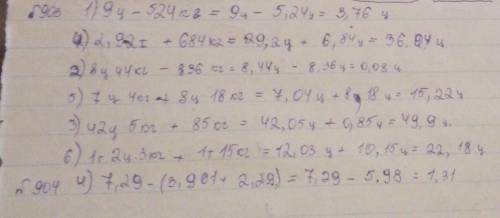 №903 1) 9ц – 524кг = 9ц – 5,24ц = 3,76 ц
4) 2,92т + 684кг = 29,2ц + 6,84ц = 36.04ц
2) 8ц 44кг – 836 кг = 8,44ц – 8.36ц = 0,08 ц
5) 7ц 4кг + 8ц 18кг = 7,04ц + 8,18ц = 15,22ц
3) 42ц 5кг + 85кг = 42,05ц + 0,85ц = 49,9ц.
6) 1т 2ц 3кг + 1т 15кг = 12,03ц + 10,15ц = 22,18ц
№904 4) 7,29 – (3,901 + 2,29) = 7,29 – 5.98 = 1,31